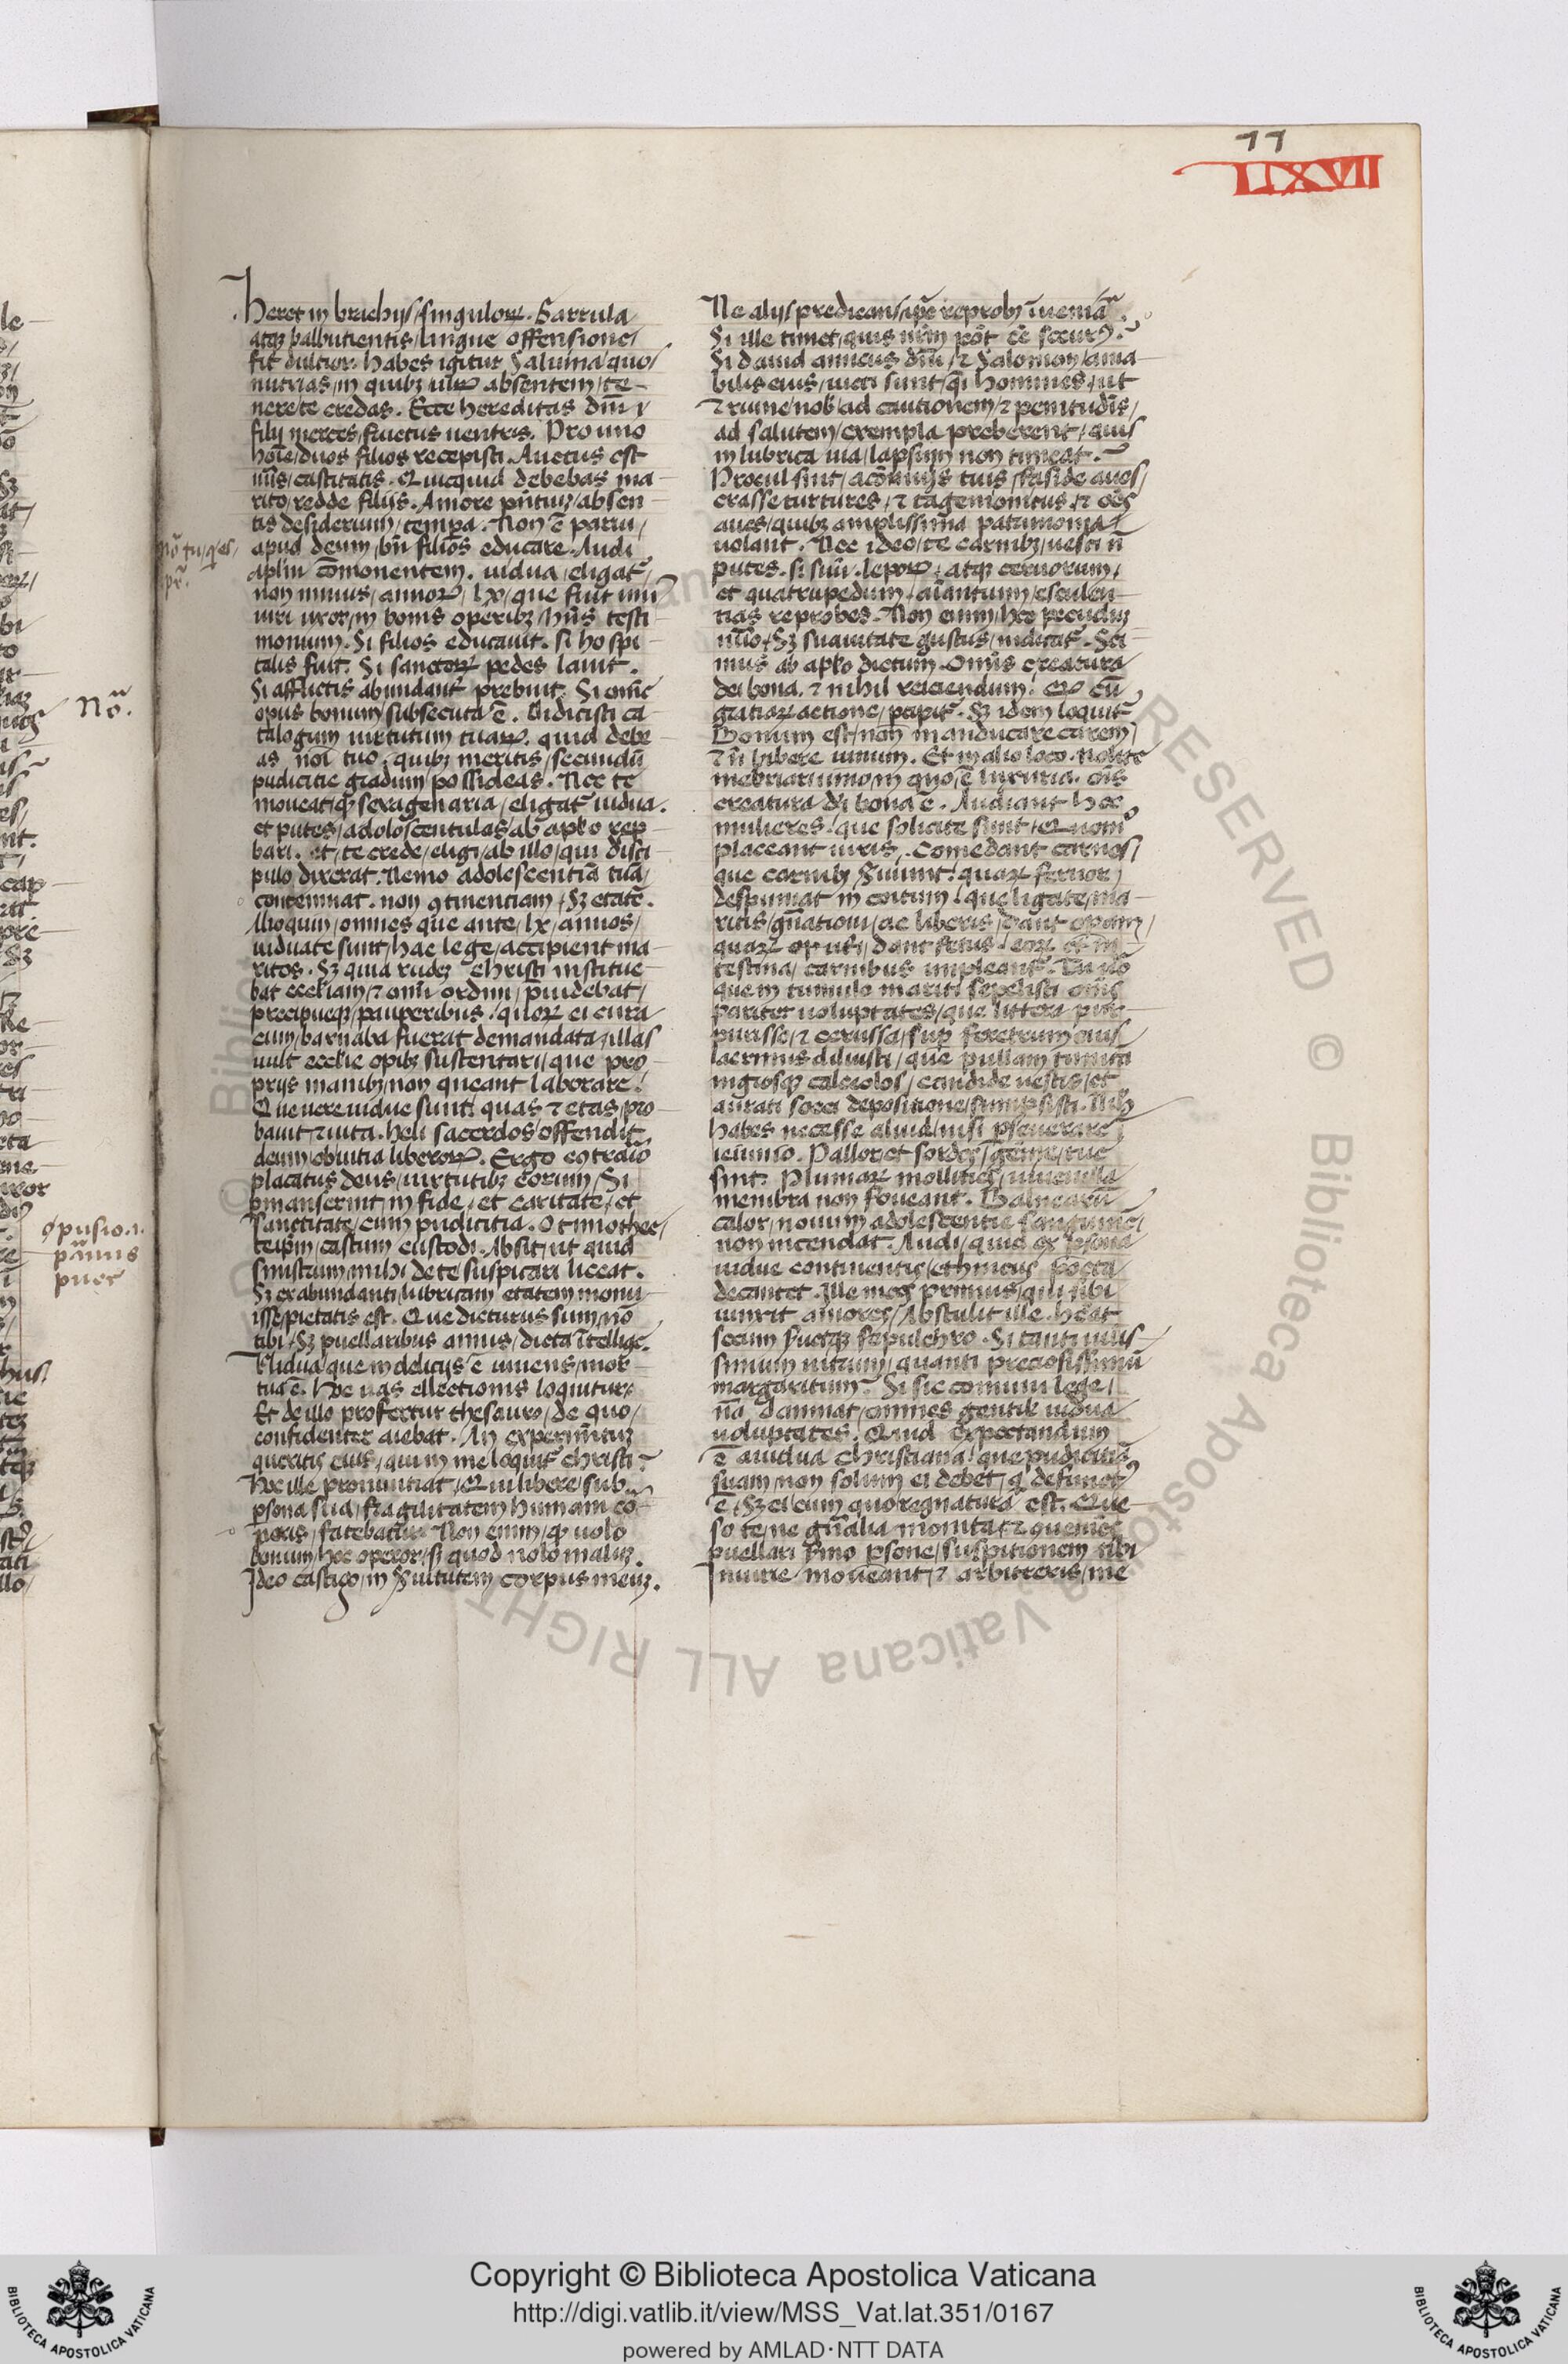 77
LXXVII
heret in brachijs / singulorꝝ. Garrula
atqꝫ balbutientis / lingue offensione /
fit dulcior. habes igitur Saluina / quos
nutrias / in quibꝫ uirꝝ absentem / te-
nere / te credas. Ecce hereditas dñi /
filij merces / fructus uentris. Pro uno
hoīe / duos filios recepisti. Auctus est
nūs / castitatis. Quicquid debebas ma-
rito / redde filijs. Amore pñtiuꝫ / absen-
tis desiderium / tempa. Non ē parui /
apud deum / bñ filios educare. Audi
aplm cōmonentem. uidua / eligat᷑ /
non minus / annorꝝ / lx / que fuit uniꝰ
uiri uxor / in bonis operibꝫ / hñs testi-
monium. Si filios educauit. si hospi-
talis fuit. Si sanctorꝝ pedes lauit.
Si afflictis abundant᷑ prebuit. Si omē
opus bonum / subsecuta ē. Didicisti ca-
talogum uirtutum tuarꝝ. quid debe-
as nōi tuo / quibꝫ meritis / secundū
pudicitie gradum / possideas. Nec te
moueat / qꝫ sexagenaria / eligat᷑ uidua.
et putes / adolescentulas / ab aplo rep-
bari. et / te crede / eligi / ab illo / qui disci-
pulo dixerat. Nemo adolescentiā tuā /
contemnat. non ꝯtinentiam / sꝫ etatē.
Alioquin / omnes que ante / lx / annos /
uiduate sunt / hac lege / accipient ma-
ritos. Sꝫ quia rudeꝫ christi institue-
bat eccliam / ⁊ omī ordini / puidebat /
precipueqꝫ / pauperibus. quorꝝ ei cura
cum / barnaba fuerat demandata / illas
uult ecclie opibꝫ sustentari / que pro-
prijs manibꝫ / non queant laborare /
Que uere uidue sunt / quas ⁊ etas / pro-
bauit ⁊ uita. Heli sacerdos / offendit
deum / ob uitia liberorꝝ. Ergo e ꝯtraio
placatus deus / uirtutibꝫ eorum / Si
pmanserint / in fide / et caritate / et
sanctitate / cum pudicitia. O timothee /
teipm / castum custodi. Absit / ut quid
sinistrum / mihi de te / suspicari liceat.
Sꝫ ex abundanti / lubricam etatem monu-
isse / pietatis est. Que dicturus sum / nō
tibi / sꝫ puellaribus annis / dicta ītellige.
Uidua / que in delicijs ē uiuens / mor-
tua ē. Hoc uas ellectionis loquitur /
Et de illo profertur thesauro / de quo /
confidenter aiebat. An experimtuꝫ
queritis eius / qui in me loquit᷑ christi?
Hoc ille pronuntiat / Qui libere / sub
psona sua / fragilitatem humani cō-
poris / fatebatur. Non enim / qꝫ uolo
bonum / hoc operor / sꝫ quod nolo maluꝫ.
Ideo castigo / in seruitutem corpus meuꝫ.
Ne alijs predicans / ipē reprobꝰ īueniaꝛ.
Si ille timet / quis nrm pōt eē securꝰ?
Si dauid amicus dñi / ⁊ Salomon / ama-
bilis eius / uicti sunt / qi homines / ut
⁊ ruine / nob / ad cautionem / ⁊ penitudīs /
ad salutem / exempla preberent / quis
in lubrica uia / lapsum non timeat.
Procul sint / a cōuiuijs tuis / faside aues /
crasse turtures / ⁊ tagemonitus / ⁊ oēs
aues / quibꝫ amplissima patrimonia /
uolant. Nec ideo / te carnibꝫ / uesci ñ
putes. si suū. leporꝝ / atqꝫ ceruorum /
et quatrupedum / aīantium / esculen-
tias reprobes. Non enim / hec pecudiꝫ
nūo / sꝫ suauitate gustus / iudicat᷑. Sci-
mus ab aplo dictum. Omīs creatura
dei bona. ⁊ nihil reiciendum. Qꝺ cū
gratiaꝝ actione / pcipit᷑. Sꝫ idem loquit᷑
Bonum est / non manducare carem /
⁊ ñ bibere uinum. Et in alio loco. nolite
inebriari uino / in quo / ē luxuria. oīs
creatura dei bona ē. Audiant hec
mulieres / que solicite sunt / Quomō
placeant uiris. Comedant carnes /
que carnibꝫ seruiunt. quarꝝ feruor /
despumat in coitum. que ligate / ma-
ritis / gñationi / ac liberis / dant opam /
quarꝝ
testina / carnibus impleant᷑. Tu uō
que in tumulo mariti sepelisti oīns
pariter uoluptates / que littera pur-
purisso / ⁊ cerussa / sup feretrum eius /
lacrimis diluisti / que pullam tunica
nigrosqꝫ calciolos / candide uestis / et
aurati socci depositione / sumpsisti. Nihil
habes necesse aliud / nisi pseuerare /
ieiunio. Pallor / et sordes / gēme / tue
sint. Plumarꝝ mollities / iuuenilia
membra non foueant. Balnearū
calor / nouum adolescentie sanguinē /
non incendat. Audi / quid ex psona
uidue continentis / ethnicus poeta
decantet. Ille meos primus / qui sibi
iunxit amores / Abstulit ille. heat
secum seruetqꝫ sepulchro. Si tanti uilis-
simum uitrum / quanti preciosissimū
margaritum. Si sic comuni lege /
damnat / omnes gentil uidua
uoluptates. Quid expectandum
ē a uidua christiana / que pudicitiā
suam / non solum ei debet / q defunctꝰ
ē / sꝫ ei cum quo regnatura est. Que-
so te / ne gñalia monita / ⁊ ꝯueniēs
puellari sermo psone / suspitionem tibi
iniurie moueant / ⁊ arbitreris / me
Nō.
ꝯpusio .i.
puer